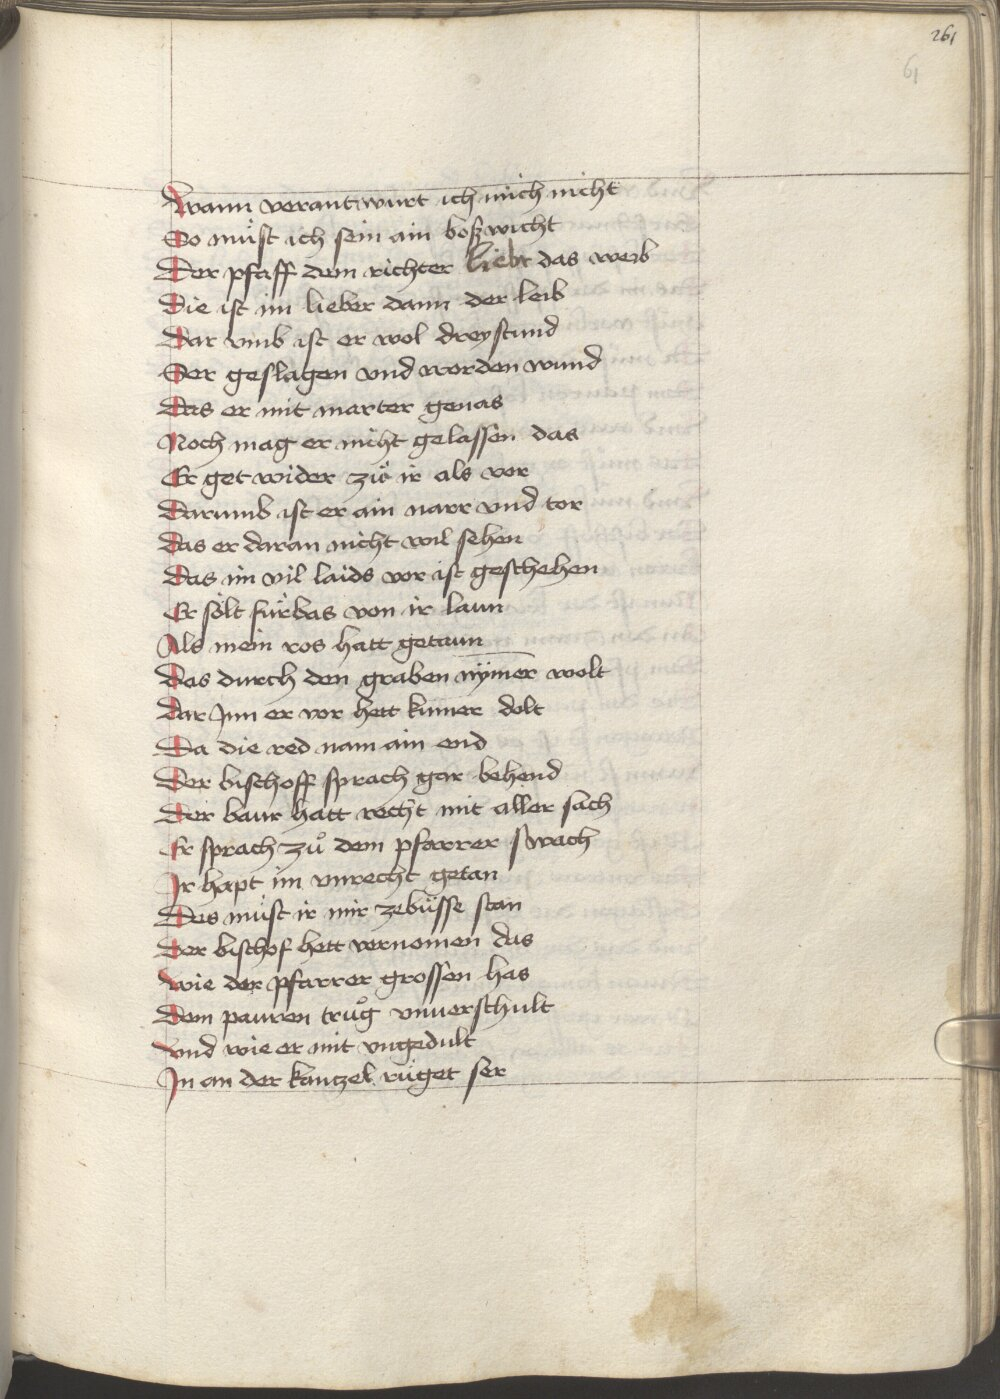 261
61
Wann verantwurt ich mich nicht
So müst ich sein ain boßwicht
Der pfaff dem richter liebt das weib
Die ist im lieber dann der leib
Dar vmb ist er wol dreystund
Ser geslagen vnd worden wund
Das er mit marter genas
Noch mag er nicht gelassen das
Er get wider zů ir als vor
Darumb ist er ain narr vnd tor
Das er daran nicht wil sehen
Das im vil laids vor ist geschehen
Er sölt fürbas von ir laun
Als mein ros hatt getaun
Das durch den graben nym̄er wolt
Dar Jnn er vor hett kum̄er dolt
Da die red nam ain end
Der bischoff sprach gar behend
Der baur hatt recht mit aller sach
Er sprach zů dem pfarrer swach
Jr hapt im vnrecht getan
Des müst ir mir zebüsse stan
Der bischof hett vernomen das
Wie der pfarrer grossen has
Dem pauren trůg vnuerschult
Vnd wie er mit vngedult
Jn an der kantzel rüget ser